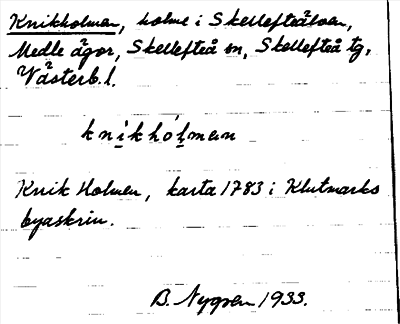 Knikholmen, holme i Skellefteälven,
Medle ägor, Skellefteå sn, Skellefteå tg,
Västerb. l.
knikhólman
Knik Holmen, karta 1783 i Klutmarks
byaskrin.
B. Nygren 1933.